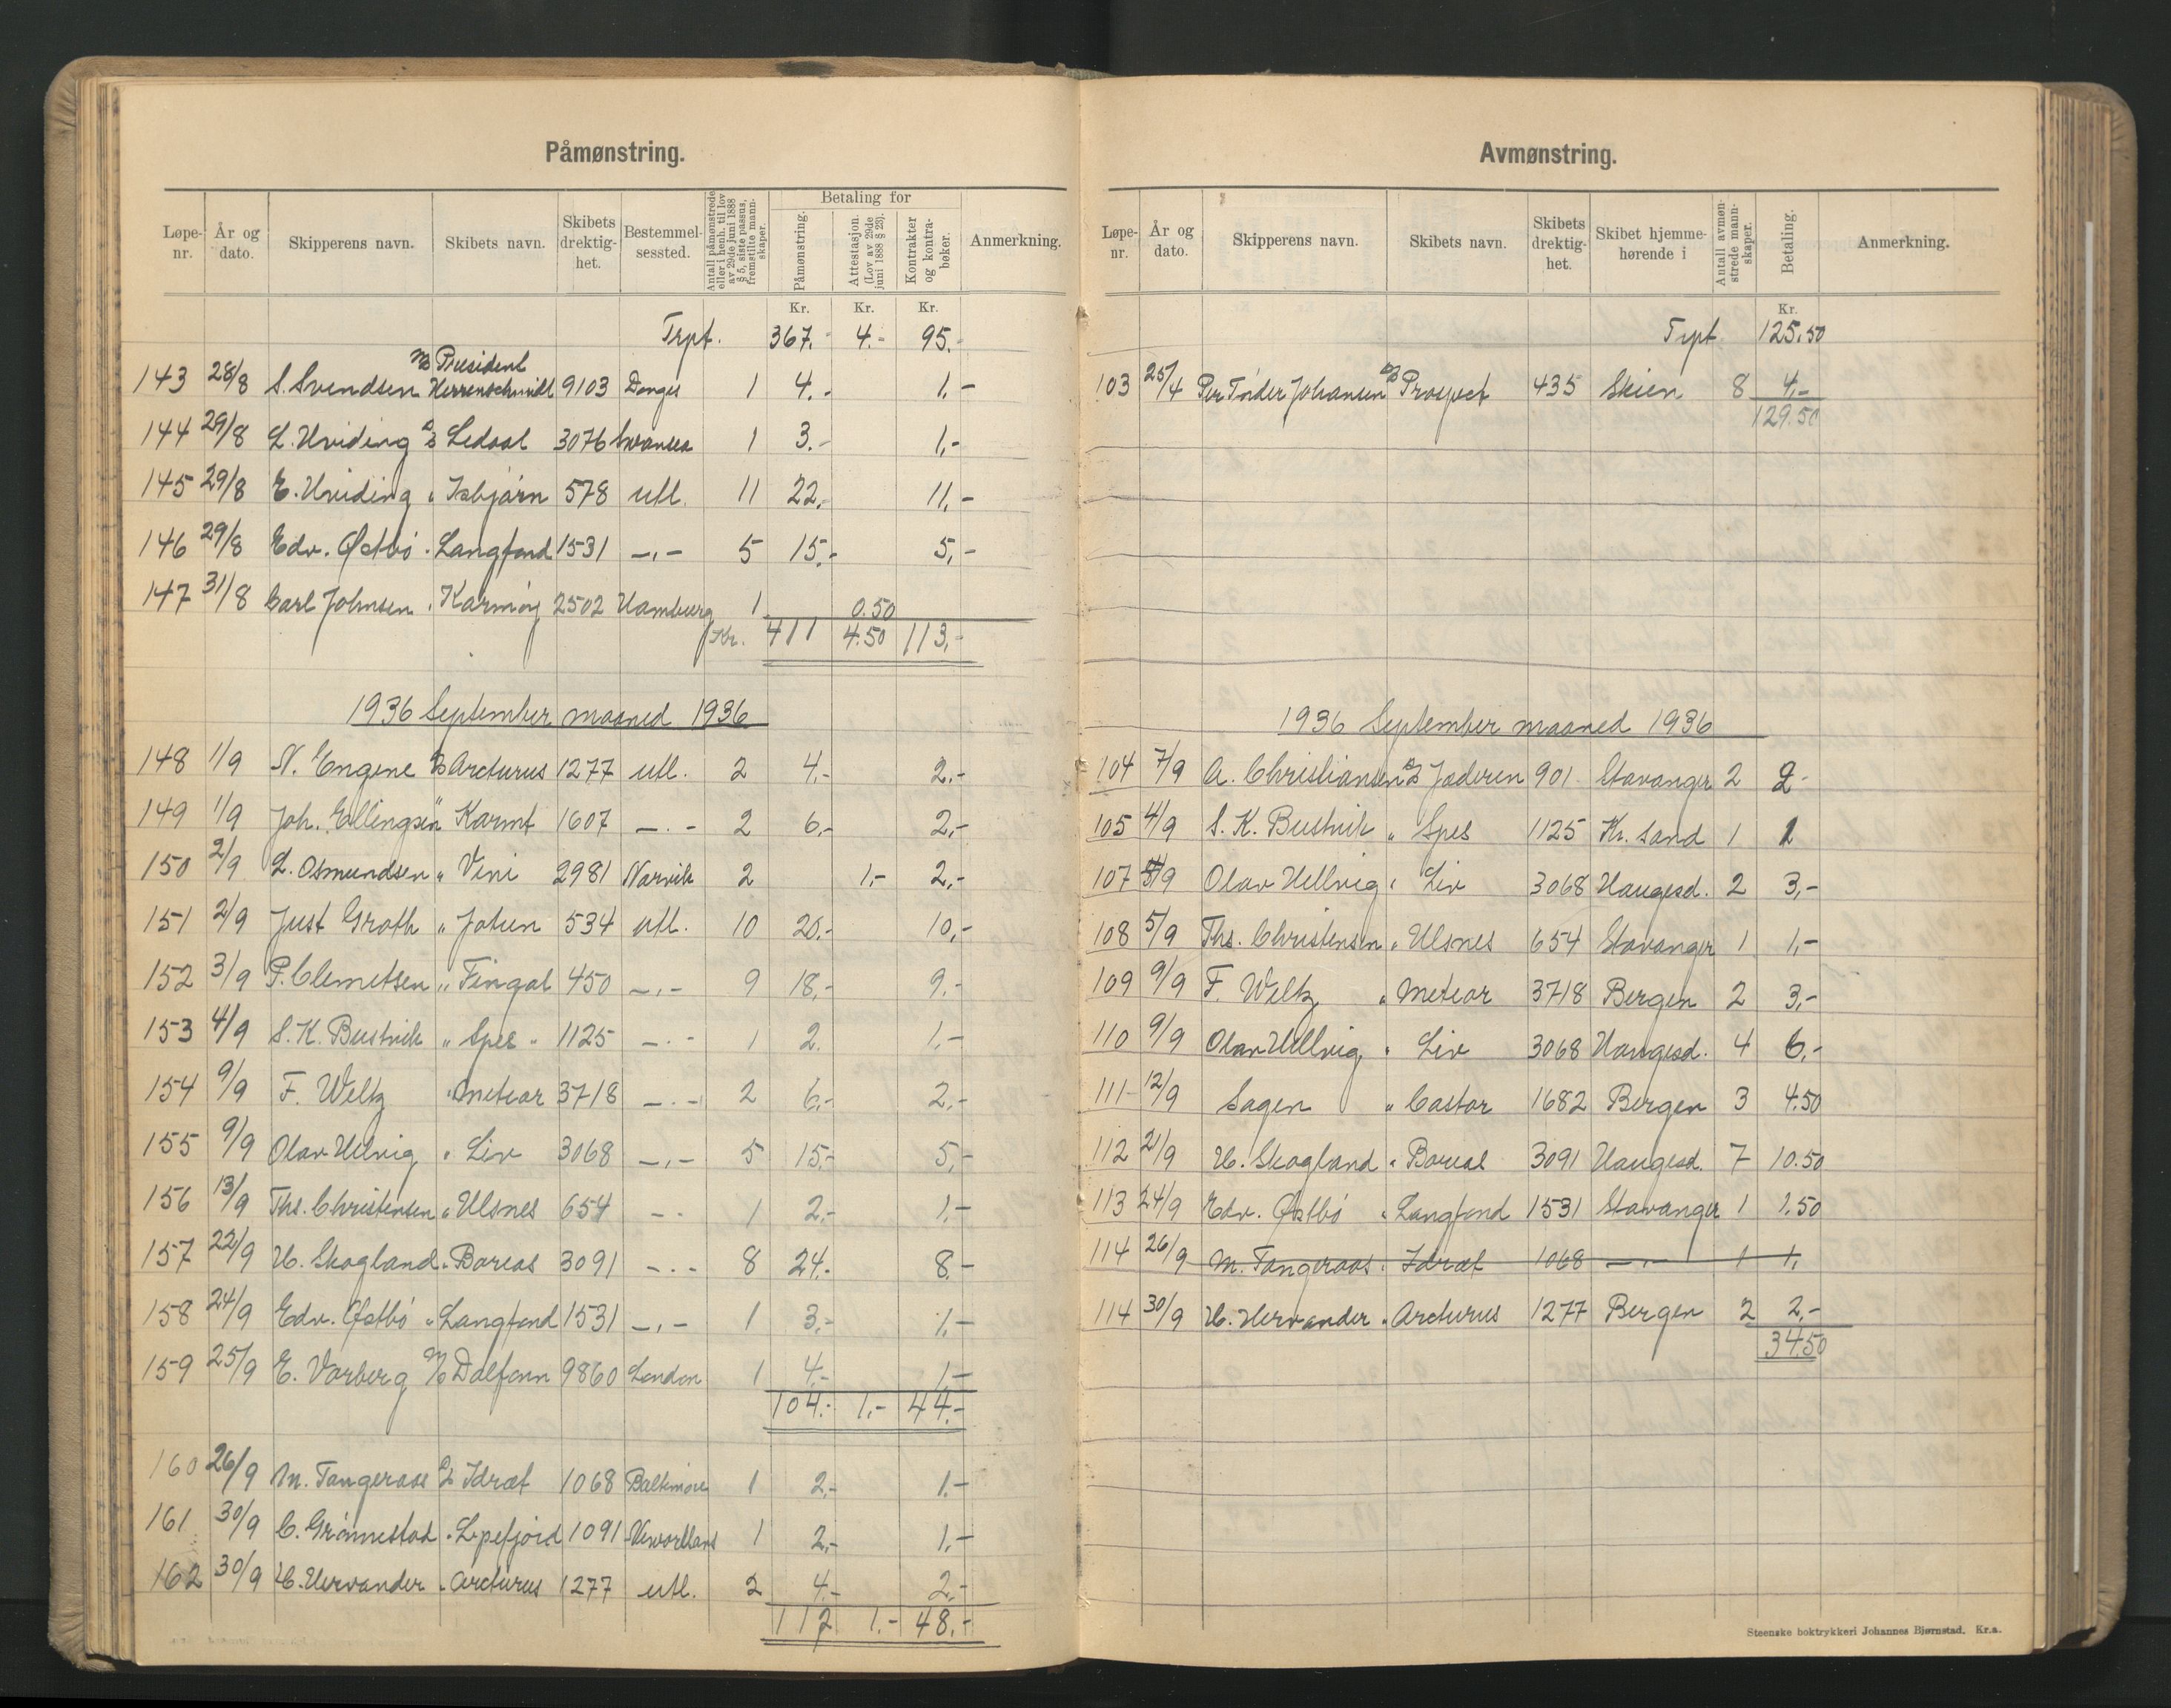 Påmønstring.
Løpe-nr. År og dato. Skipperens navn. Skibets navn. Skibets drektig-het. Bestemmel-sessted. Antall påmønstrede eller i henh. til lov av 29de juni 1888 § 5, siste passus, fremstilte mann-skaper. Betaling for Påmønstring. Attestasjon. (Lov av 29de juni 1888 § 23). Kontrakter og kontra-bøker. Anmerkning.
Kr. Kr. Kr.
Trpt. 367.- 4.- 95.-
143 28/8 S. Svendsen M/S President Herrenschmidt 9103 Donges 1 4.- 1.-
144 29/8 L. Hviding D/S Ledaal 3076 Swansea 1 3.- 1,-
145 29/8 E. Hviding " Isbjørn 578 utl. 11 22.- 11,-
146 29/8 Edv. Østbö " Langfond 1531 -"- 5 15.- 5,-
147 31/8 Carl Johnsen " Karmöy 2502 Hamburg 1 0.50
Kr. 411 4.50 113.-
1936 September maaned 1936
148 1/9 N. Engene D/S Arcturus 1277 utl. 2 4.- 2.-
149 1/9 Joh. Ellingsen " Karmt 1607 -"- 2 6.- 2,-
150 2/9 L. Osmundsen " Vini 2981 Narvik 2 1,- 2,-
151 2/9 Just Groth " Jotun 534 utl. 10 20.- 10,-
152 3/9 P. Clemetsen " Fingal 450 -"- 9 18,- 9.-
153 4/9 S. K. Bustvik " Spes " 1125 -"- 1 2. 1.-
154 9/9 F. Weltz " Meteor 3718 -"- 2 6.- 2.-
155 9/9 Olav Hellvig " Liv 3068 -"- 5 15.- 5,-
156 13/9 Ths. Christensen " Ulsnes 654 -"- 1 2.- 1.-
157 22/9 H. Skogland " Boreas 3091 -"- 8 24.- 8.-
158 24/9 Edv. Østbö " Langfond 1531 -"- 1 3.- 1.-
159 25/9 E. Varberg M/S Dalfonn 9860 London 1 4.- 1-
104.- 1,- 44.-
160 26/9 M. Tangeraas D/S Idræt 1068 Baltimore 1 2.- 1.-
161 30/9 C. Grönnestad " Lysefjord 1091 1 2,- 1,-
162 30/9 H. Hervander " Arcturus 1277 utl. 2 4.- 2.-
112 1.- 48.-
Avmønstring.
Løpe-nr. År og dato. Skipperens navn. Skibets navn. Skibets drektig-het. Skibet hjemme-hørende i Antall avmøn-strede mann-skaper. Betaling. Anmerkning.
Kr.
Trpt 125.50
103 25/4 Per Tönder Johansen D/S Prospect 435 Skien 8 4,-
129.50
1936 September maaned 1936
104 7/9 A. Christiansen D/S Jæderen 901 Stavanger 2 2-
105 4/9 S. K. Bustvik " Spes 1125 Kr. sand 1 1
107 4/9 Olav Hellvig " Liv 3068 Haugesd. 2 3,-
108 5/9 Ths. Christensen " Ulsnes 654 Stavanger 1 1,-
109 9/9 F. Weltz " Meteor 3718 Bergen 2 3,-
110 9/9 Olav Hellvig " Liv 3068 Haugesd. 4 6,-
111 12/9 Sagen " Castor 1682 Bergen 3 4.50
112 21/9 H. Skogland " Boreas 3091 Haugesd. 7 10.50
113 24/9 Edv. Østbö " Langfond 1531 Stavanger 1 1.50
114 26/9 M. Tangeraas " Idræt 1068 -"- 1 1,
114 30/9 H. Hervander " Arcturus 1277 Bergen 2 2,-
34.50
Steenske boktrykkeri Johannes Bjørnstad. Kr.a.